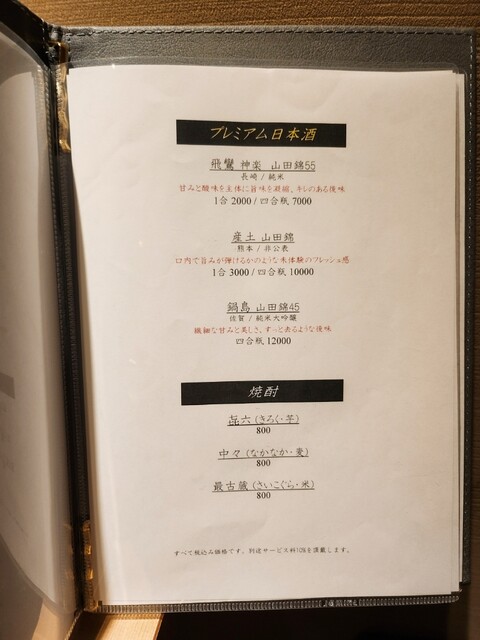 プレミアム日本酒
飛鸞 神楽 山田錦55
長崎 / 純米
甘みと酸味を主体に旨味を凝縮、キレのある後味
1合 2000 / 四合瓶 7000
産土 山田錦
熊本 / 非公表
口内で旨みが弾けるかのような未体験のフレッシュ感
1合 3000 / 四合瓶 10000
鍋島 山田錦45
佐賀 / 純米大吟醸
繊細な甘みと美しさ、すっと去るような後味
四合瓶 12000
焼酎
㐂六 (きろく・芋)
800
中々 (なかなか・麦)
800
最古蔵 (さいこぐら・米)
800
すべて税込み価格です。別途サービス料10%を頂戴します。